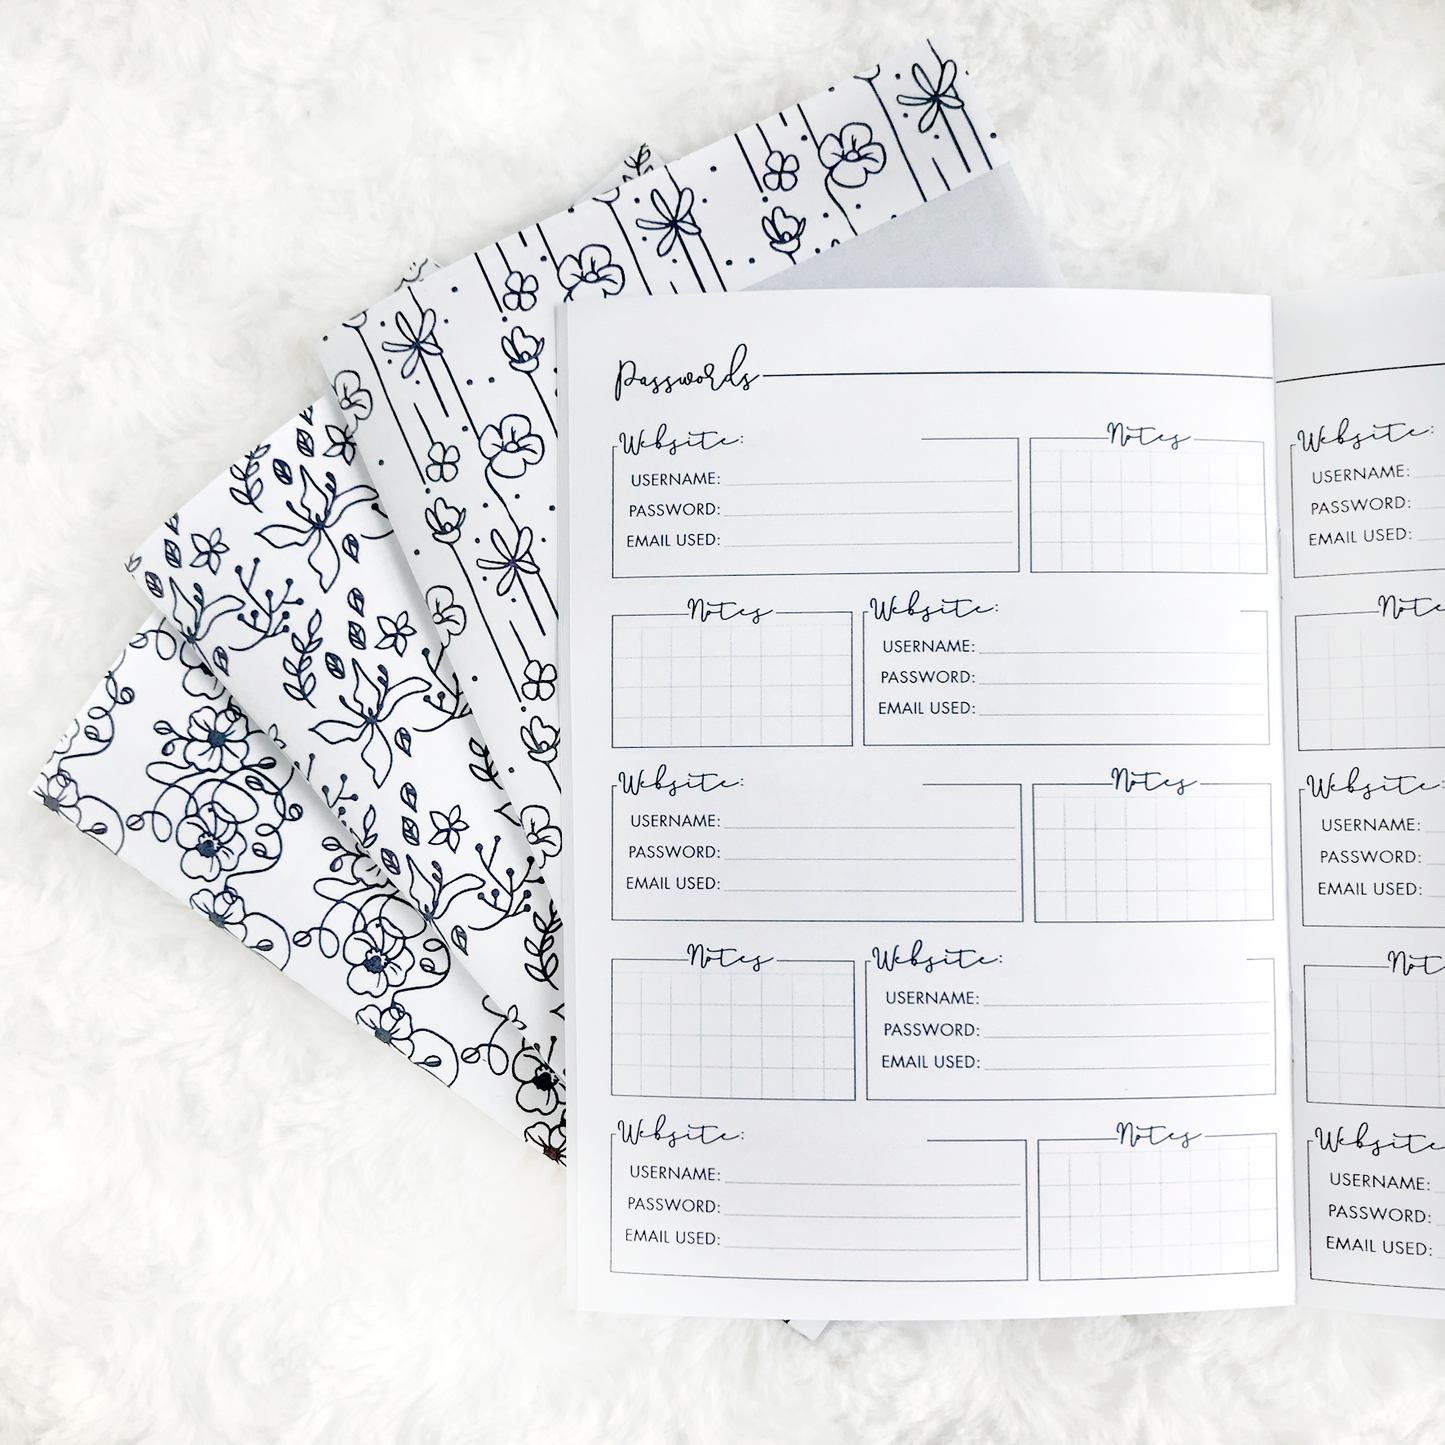 Passwords
Website:
USERNAME:
PASSWORD:
EMAIL USED:
Notes
Notes
Website:
USERNAME:
PASSWORD:
EMAIL USED:
Website:
USERNAME:
PASSWORD:
EMAIL USED:
Notes
Notes
Website:
USERNAME:
PASSWORD:
EMAIL USED:
Website:
USERNAME:
PASSWORD:
EMAIL USED:
Notes
Website:
USERNAME:
PASSWORD:
EMAIL USED:
Note
Website:
USERNAME:
PASSWORD:
EMAIL USED:
Not
Website:
USERNAME:
PASSWORD:
EMAIL USED: